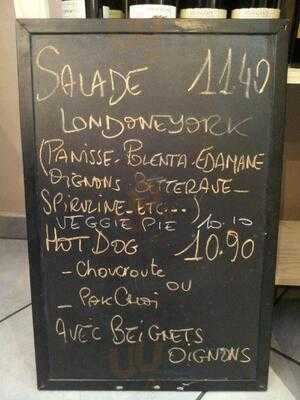 SALADE 11.40
LONDONEYORK
(PANISSE - POLENTA - EDAMANE
OIGNONS - BETTERAVE -
SPIRULINE - ETC...)
VEGGIE PIE 10.10
HOT DOG 10.90
- Choucroute
OU
- PAK Choi
AVEC BEIGNETS
OIGNONS